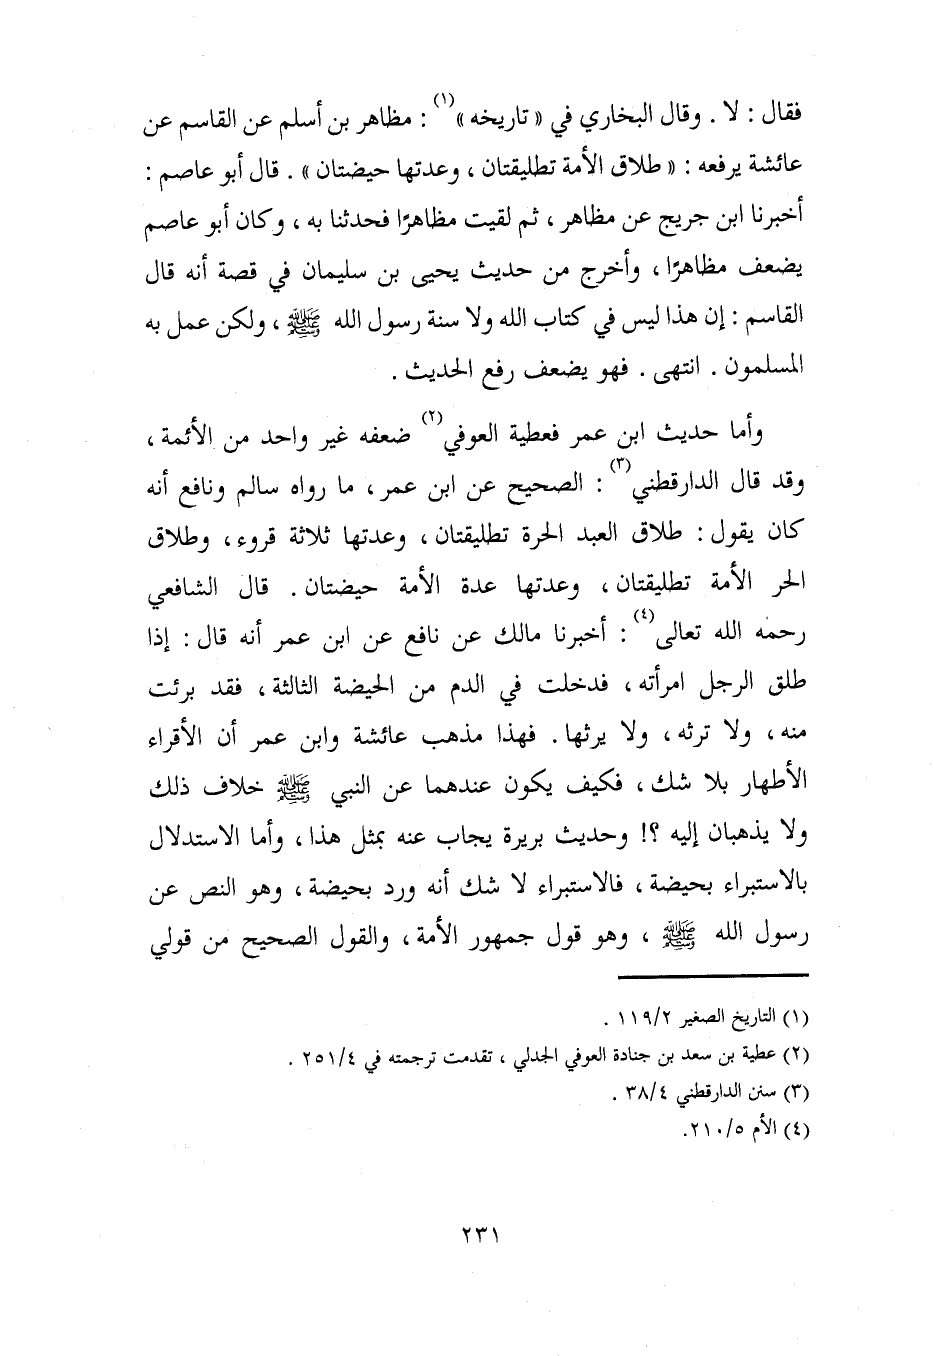 فقال : لا . وقال البخاري في « تاريخه »(١) : مظاهر بن أسلم عن القاسم عن
عائشة يرفعه : « طلاق الأمة تطليقتان ، وعدتها حيضتان » . قال أبو عاصم :
أخبرنا ابن جريج عن مظاهر ، ثم لقيت مظاهرًا فحدثنا به ، وكان أبو عاصم
يضعف مظاهرًا ، وأخرج من حديث يحيى بن سليمان في قصة أنه قال
القاسم : إن هذا ليس في كتاب الله ولا سنة رسول الله ﷺ ، ولكن عمل به
المسلمون . انتهى . فهو يضعف رفع الحديث .
وأما حديث ابن عمر فعطية العوفي(٢) ضعفه غير واحد من الأئمة ،
وقد قال الدارقطني(٣) : الصحيح عن ابن عمر ، ما رواه سالم ونافع أنه
كان يقول : طلاق العبد الحرة تطليقتان ، وعدتها ثلاثة قروء ، وطلاق
الحر الأمة تطليقتان ، وعدتها عدة الأمة حيضتان . قال الشافعي
رحمه الله تعالى(٤) : أخبرنا مالك عن نافع عن ابن عمر أنه قال : إذا
طلق الرجل امرأته ، فدخلت في الدم من الحيضة الثالثة ، فقد برئت
منه ، ولا ترثه ، ولا يرثها . فهذا مذهب عائشة وابن عمر أن الأقراء
الأطهار بلا شك ، فكيف يكون عندهما عن النبي ﷺ خلاف ذلك
ولا يذهبان إليه ؟! وحديث بريرة يجاب عنه بمثل هذا ، وأما الاستدلال
بالاستبراء بحيضة ، فالاستبراء لا شك أنه ورد بحيضة ، وهو النص عن
رسول الله ﷺ ، وهو قول جمهور الأمة ، والقول الصحيح من قولي
(١) التاريخ الصغير ١١٩/٢ .
(٢) عطية بن سعد بن جنادة العوفي الجدلي ، تقدمت ترجمته في ٢٥١/٤ .
(٣) سنن الدارقطني ٣٨/٤ .
(٤) الأم ٢١٠/٥.
٢٣١